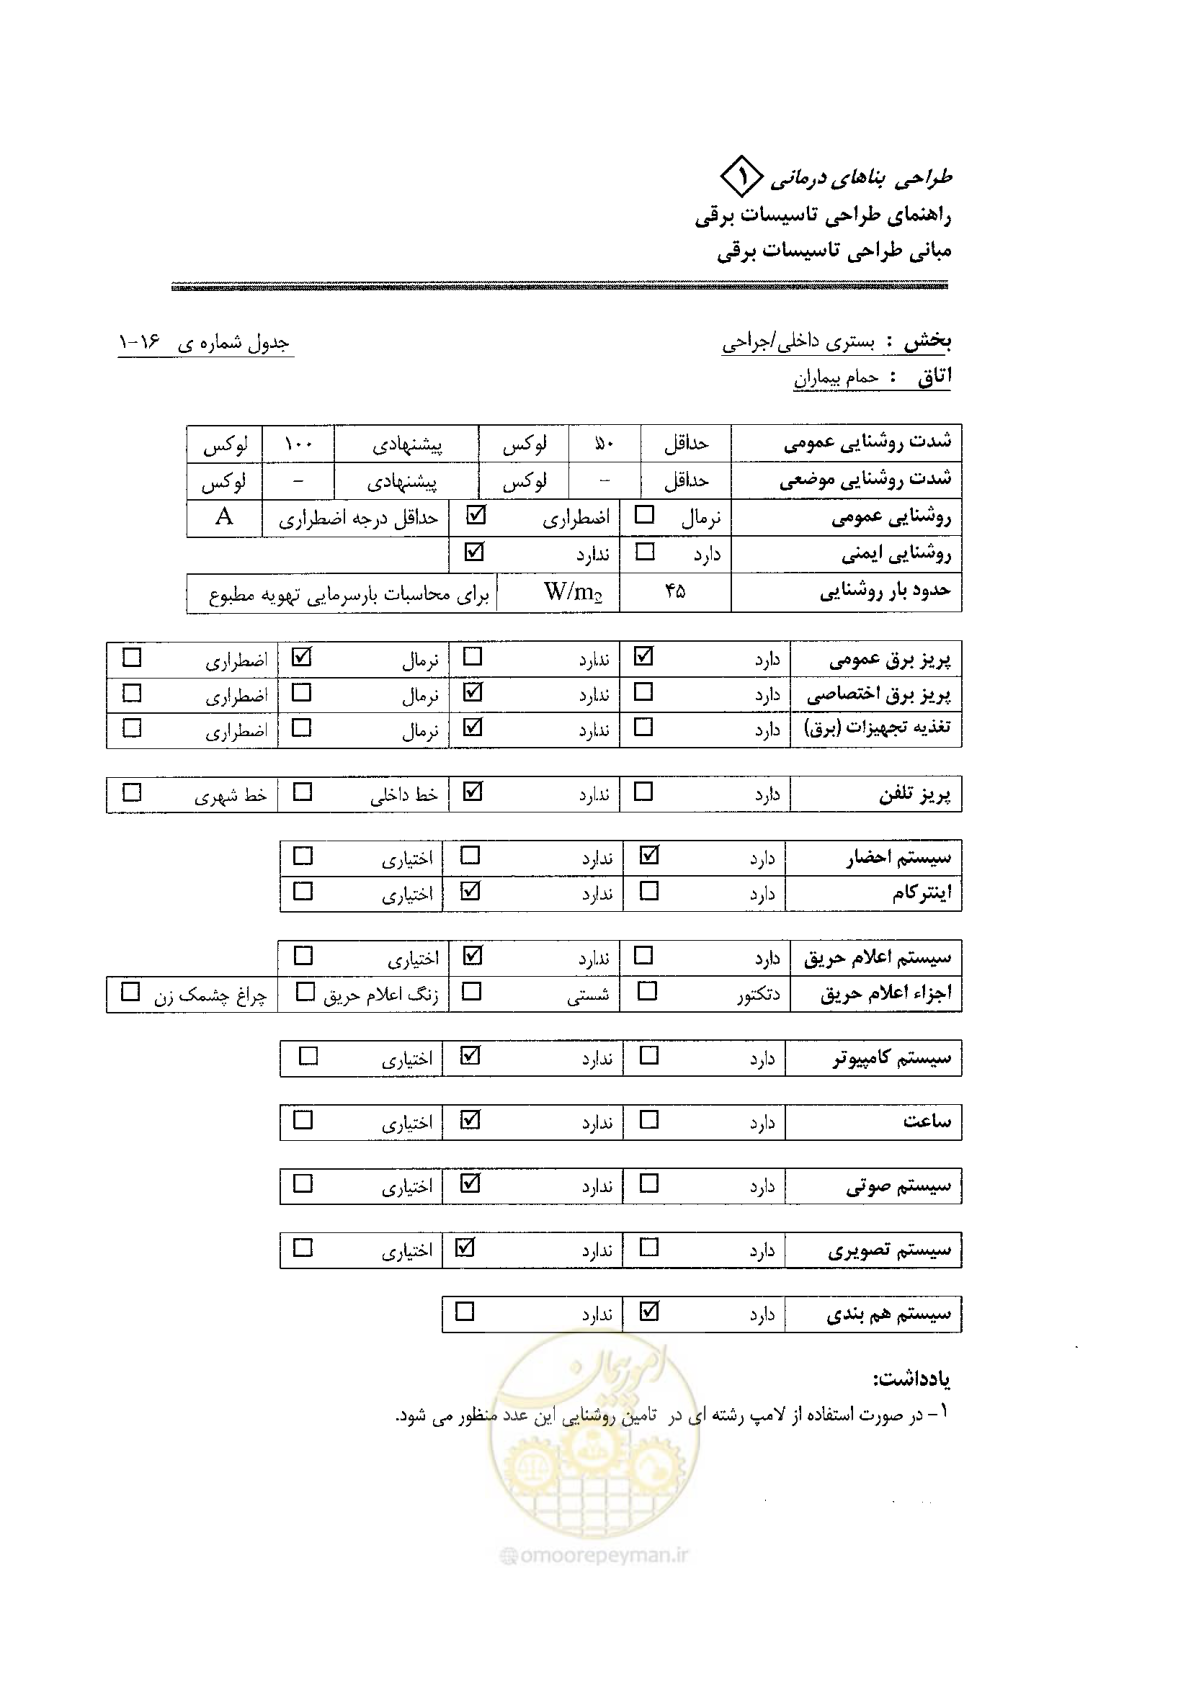 طراحی بناهای درمانی ۱
راهنمای طراحی تاسیسات برقی
مبانی طراحی تاسیسات برقی
بخش : بستری داخلی/جراحی جدول شماره ی ۱۶-۱
اتاق : حمام بیماران
شدت روشنایی عمومی حداقل ۵۰ لوکس پیشنهادی ۱۰۰ لوکس
شدت روشنایی موضعی حداقل – لوکس پیشنهادی – لوکس
روشنایی عمومی نرمال ☐ اضطراری ☑ حداقل درجه اضطراری A
روشنایی ایمنی دارد ☐ ندارد ☑
حدود بار روشنایی ۴۵ W/m2 برای محاسبات بارسرمایی تهویه مطبوع
پریز برق عمومی دارد ☑ ندارد ☐ نرمال ☑ اضطراری ☐
پریز برق اختصاصی دارد ☐ ندارد ☑ نرمال ☐ اضطراری ☐
تغذیه تجهیزات (برق) دارد ☐ ندارد ☑ نرمال ☐ اضطراری ☐
پریز تلفن دارد ☐ ندارد ☑ خط داخلی ☐ خط شهری ☐
سیستم احضار دارد ☑ ندارد ☐ اختیاری ☐
اینترکام دارد ☐ ندارد ☑ اختیاری ☐
سیستم اعلام حریق دارد ☐ ندارد ☑ اختیاری ☐
اجزاء اعلام حریق دتکتور ☐ شستی ☐ زنگ اعلام حریق ☐ چراغ چشمک زن ☐
سیستم کامپیوتر دارد ☐ ندارد ☑ اختیاری ☐
ساعت دارد ☐ ندارد ☑ اختیاری ☐
سیستم صوتی دارد ☐ ندارد ☑ اختیاری ☐
سیستم تصویری دارد ☐ ندارد ☑ اختیاری ☐
سیستم هم بندی دارد ☑ ندارد ☐
یادداشت:
۱- در صورت استفاده از لامپ رشته ای در تامین روشنایی این عدد منظور می شود.
امور پیمان
@omoorepeyman.ir